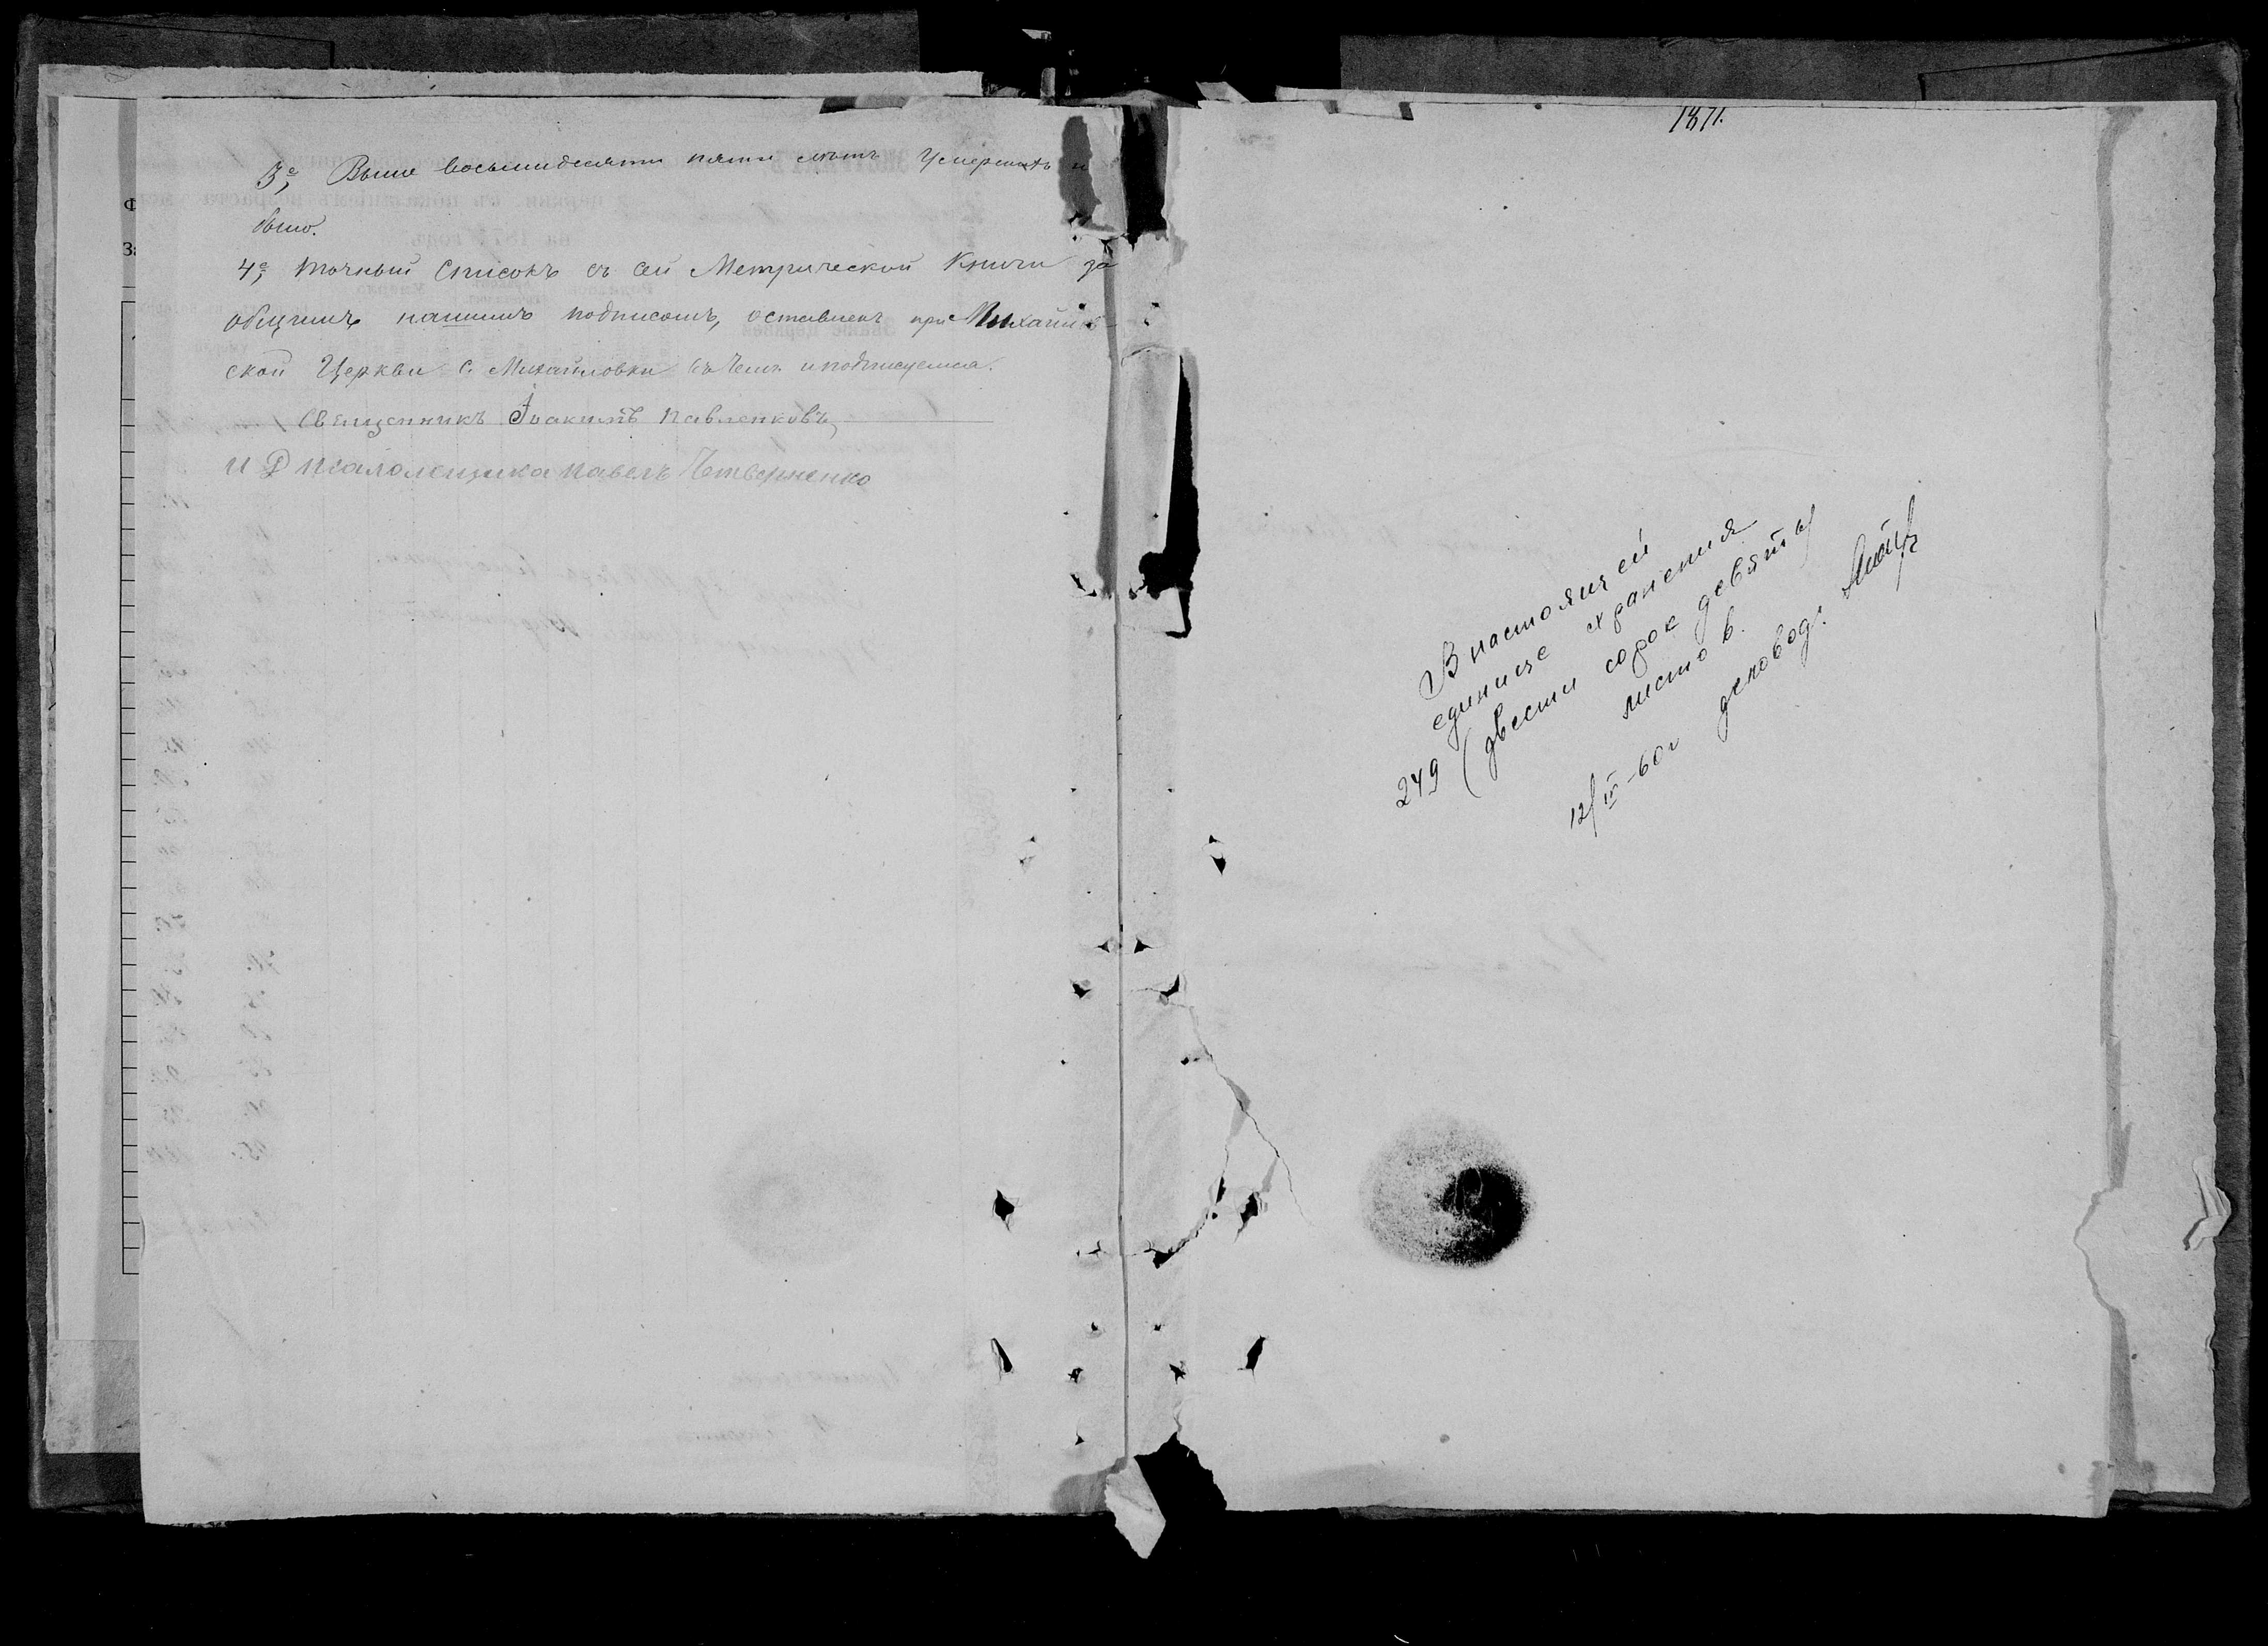 3е, Выше восьмидесяти пяти летъ Умершихъ н
было.
4е, Точный Списокъ съ сей Метрической Книги за
общимъ нашимъ подписомъ, оставленъ при Михайлов-
ской Церкви С. Михайловки въ чемъ и подписуемся.
Священникъ Іоакимъ Павленковъ,
И Д Псаломщика Павелъ Четверненко
1871.
В настоящей
единице хранения
249 (двести сорок девять)
листов.
12/IV-60г деловод: